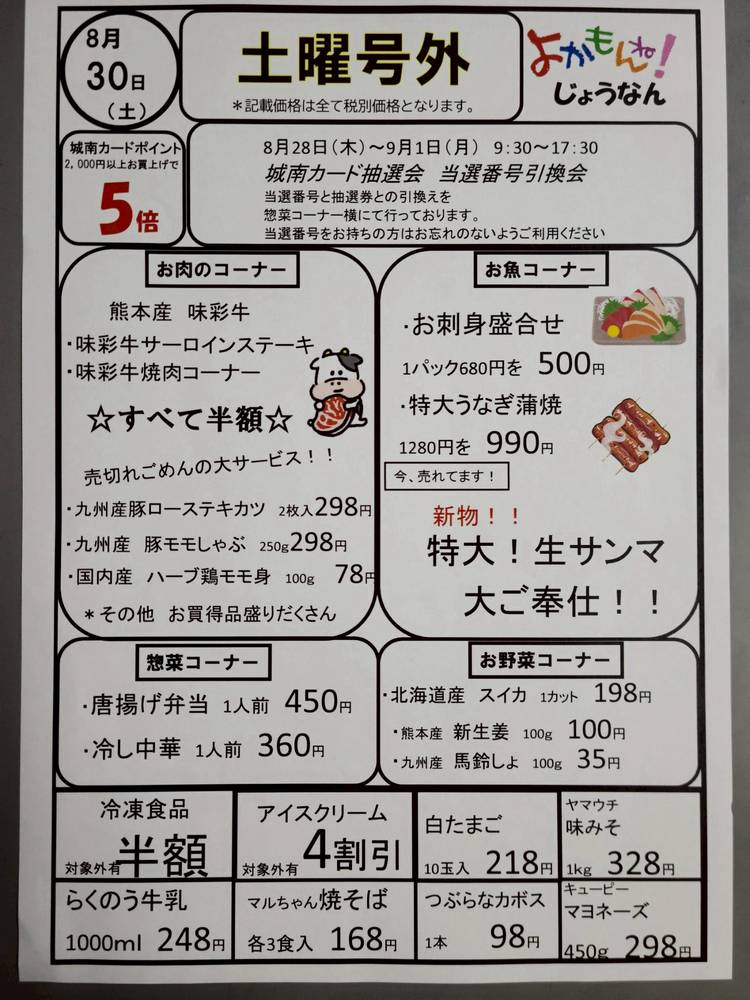 8月
30日
（土）
土曜号外
＊記載価格は全て税別価格となります。
よかもんね！
じょうなん
城南カードポイント
2,000円以上お買上げで
5倍
8月28日（木）～9月1日（月） 9：30～17：30
城南カード抽選会 当選番号引換会
当選番号と抽選券との引換えを
惣菜コーナー横にて行っております。
当選番号をお持ちの方はお忘れのないようご利用ください
お肉のコーナー
熊本産 味彩牛
・味彩牛サーロインステーキ
・味彩牛焼肉コーナー
☆すべて半額☆
売切れごめんの大サービス！！
・九州産豚ローステキカツ 2枚入298円
・九州産 豚モモしゃぶ 250g298円
・国内産 ハーブ鶏モモ身 100g 78円
＊その他 お買得品盛りだくさん
お魚コーナー
・お刺身盛合せ
1パック680円を 500円
・特大うなぎ蒲焼
1280円を 990円
今、売れてます！
新物！！
特大！生サンマ
大ご奉仕！！
惣菜コーナー
・唐揚げ弁当 1人前 450円
・冷し中華 1人前 360円
お野菜コーナー
・北海道産 スイカ 1カット 198円
・熊本産 新生姜 100g 100円
・九州産 馬鈴しょ 100g 35円
冷凍食品
対象外有 半額
アイスクリーム
対象外有 4割引
白たまご
10玉入 218円
ヤマウチ
味みそ
1kg 328円
らくのう牛乳
1000ml 248円
マルちゃん焼そば
各3食入 168円
つぶらなカボス
1本 98円
キューピー
マヨネーズ
450g 298円